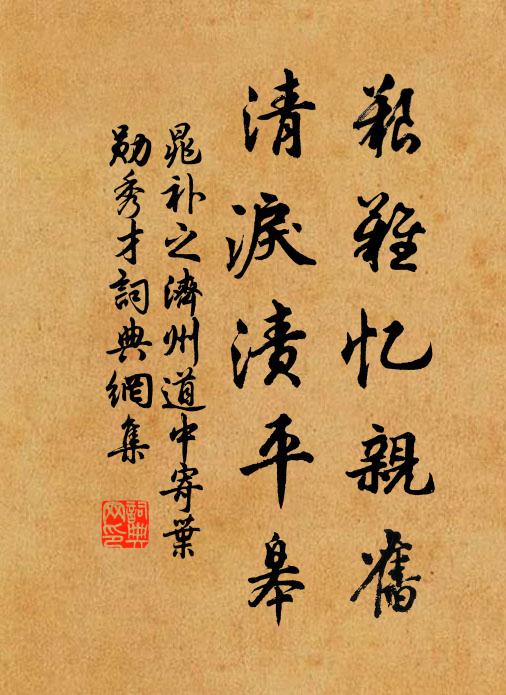 艱難忆親舊
清淚漬平皋
晁补之濟州道中寄葉
勛秀才詞典網集
詞典
网印